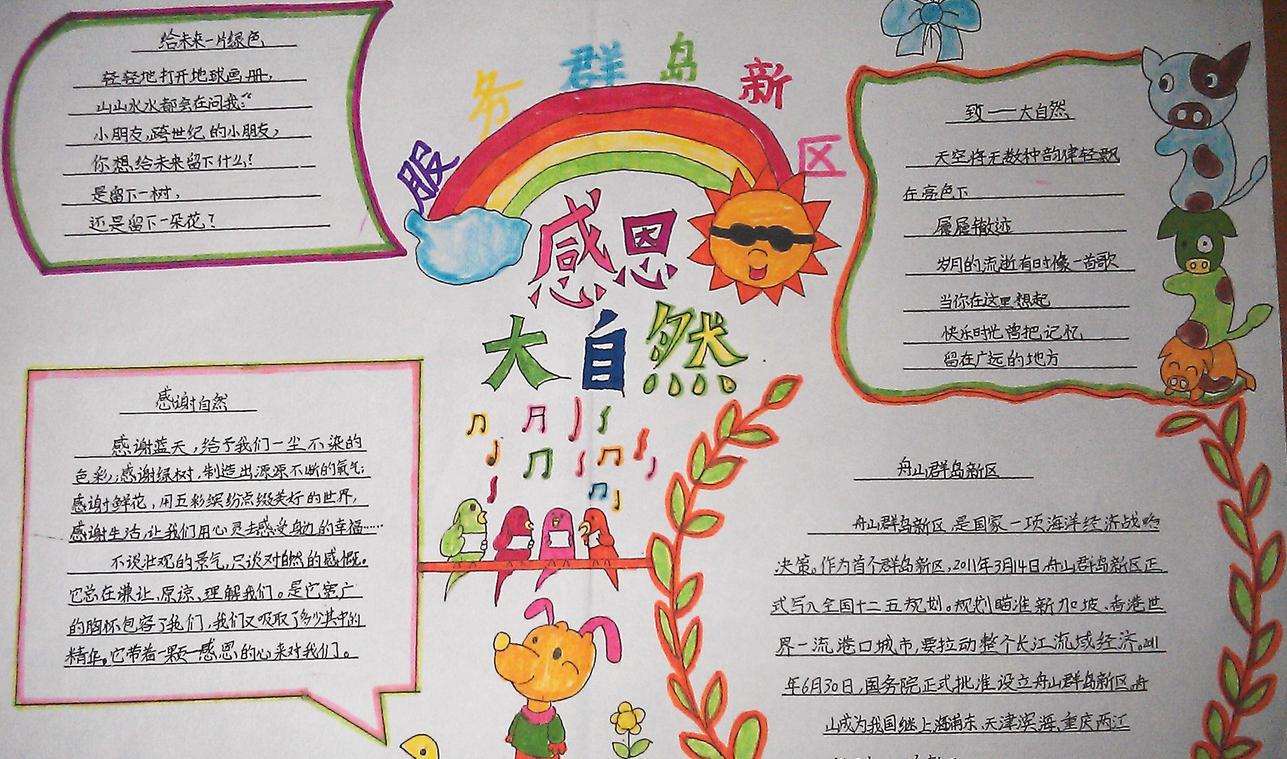 服务群岛新区
感恩
大自然
给未来一片绿色
轻轻地打开地球画册，
山山水水都会在问我：“
小朋友，跨世纪的小朋友，
你想给未来留下什么？
是留下一树，
还是留下一朵花？
致——大自然
天空将无数种韵律轻飘
在亮色下
履履辙迹
岁月的流逝有时像一首歌
当你在这里想起
快乐时忙曾把记忆
留在广远的地方
感谢自然
感谢蓝天，给予我们一尘不染的
色彩；感谢绿树，制造出源源不断的氧气；
感谢鲜花，用五彩缤纷点缀美好的世界，
感谢生活，让我们用心灵去感受身边的幸福……
不谈壮观的景气，只谈对自然的感慨。
它总在谦让、原谅、理解我们。是它宽广
的胸怀包容了我们，我们又吸取了多少其中的
精华。它带着一颗感恩的心来对我们。
舟山群岛新区
舟山群岛新区是国家一项海洋经济战略
决策。作为首个群岛新区，2011年3月14日，舟山群岛新区正
式写入全国十二五规划。规划瞄准新加坡、香港世
界一流港口城市，要拉动整个长江流域经济。2011
年6月30日，国务院正式批准设立舟山群岛新区，舟
山成为我国继上海浦东、天津滨海、重庆两江